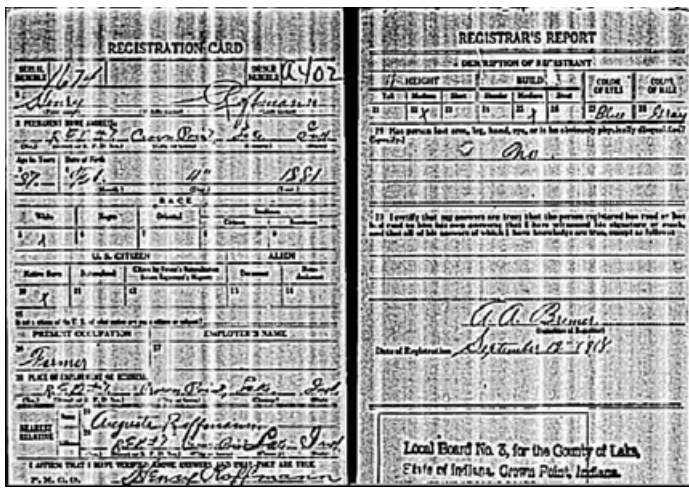 REGISTRATION CARD
SERIAL NUMBER 1674 ORDER NUMBER A402
Henry Roffmann
2 PERMANENT HOME ADDRESS:
R.F.D #7 Crown Lake Ind
Age in Years Date of Birth
37 4" 1881
RACE
White Negro Oriental
5 X 6 7 8 9
U. S. CITIZEN ALIEN
Native Born Naturalized Declarant
10 X 11 12 13 14
15
PRESENT OCCUPATION EMPLOYER'S NAME
16 Farmer 17
18 PLACE OF EMPLOYMENT OR BUSINESS:
R.F.D #7 Crown Point, Lake Ind
NEAREST RELATIVE Name Auguste Roffmann
Address R.F.D #7 Lake Ind
I AFFIRM THAT I HAVE VERIFIED ABOVE ANSWERS AND THAT THEY ARE TRUE
P. M. G. O. Henry Roffmann
REGISTRAR'S REPORT
DESCRIPTION OF REGISTRANT
HEIGHT BUILD COLOR OF EYES COLOR OF HAIR
Tall Medium Short Slender Medium Stout
21 22 X 23 24 25 X 26 27 Blue 28 Gray
29 Has person lost arm, leg, hand, eye, or is he obviously physically disqualified?
No.
30 I certify that my answers are true; that the person registered has read or has
had read to him his own answers; that I have witnessed his signature or mark,
and that all of his answers of which I have knowledge are true, except as follows:
A. A. Bremer
Date of Registration September 12 1918
Local Board No. 3, for the County of Lake,
State of Indiana, Crown Point, Indiana.